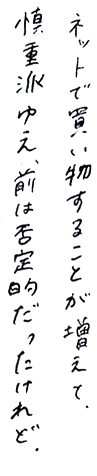 ネットで買い物することが増えて、
慎重派ゆえ、前は否定的だったけれど、